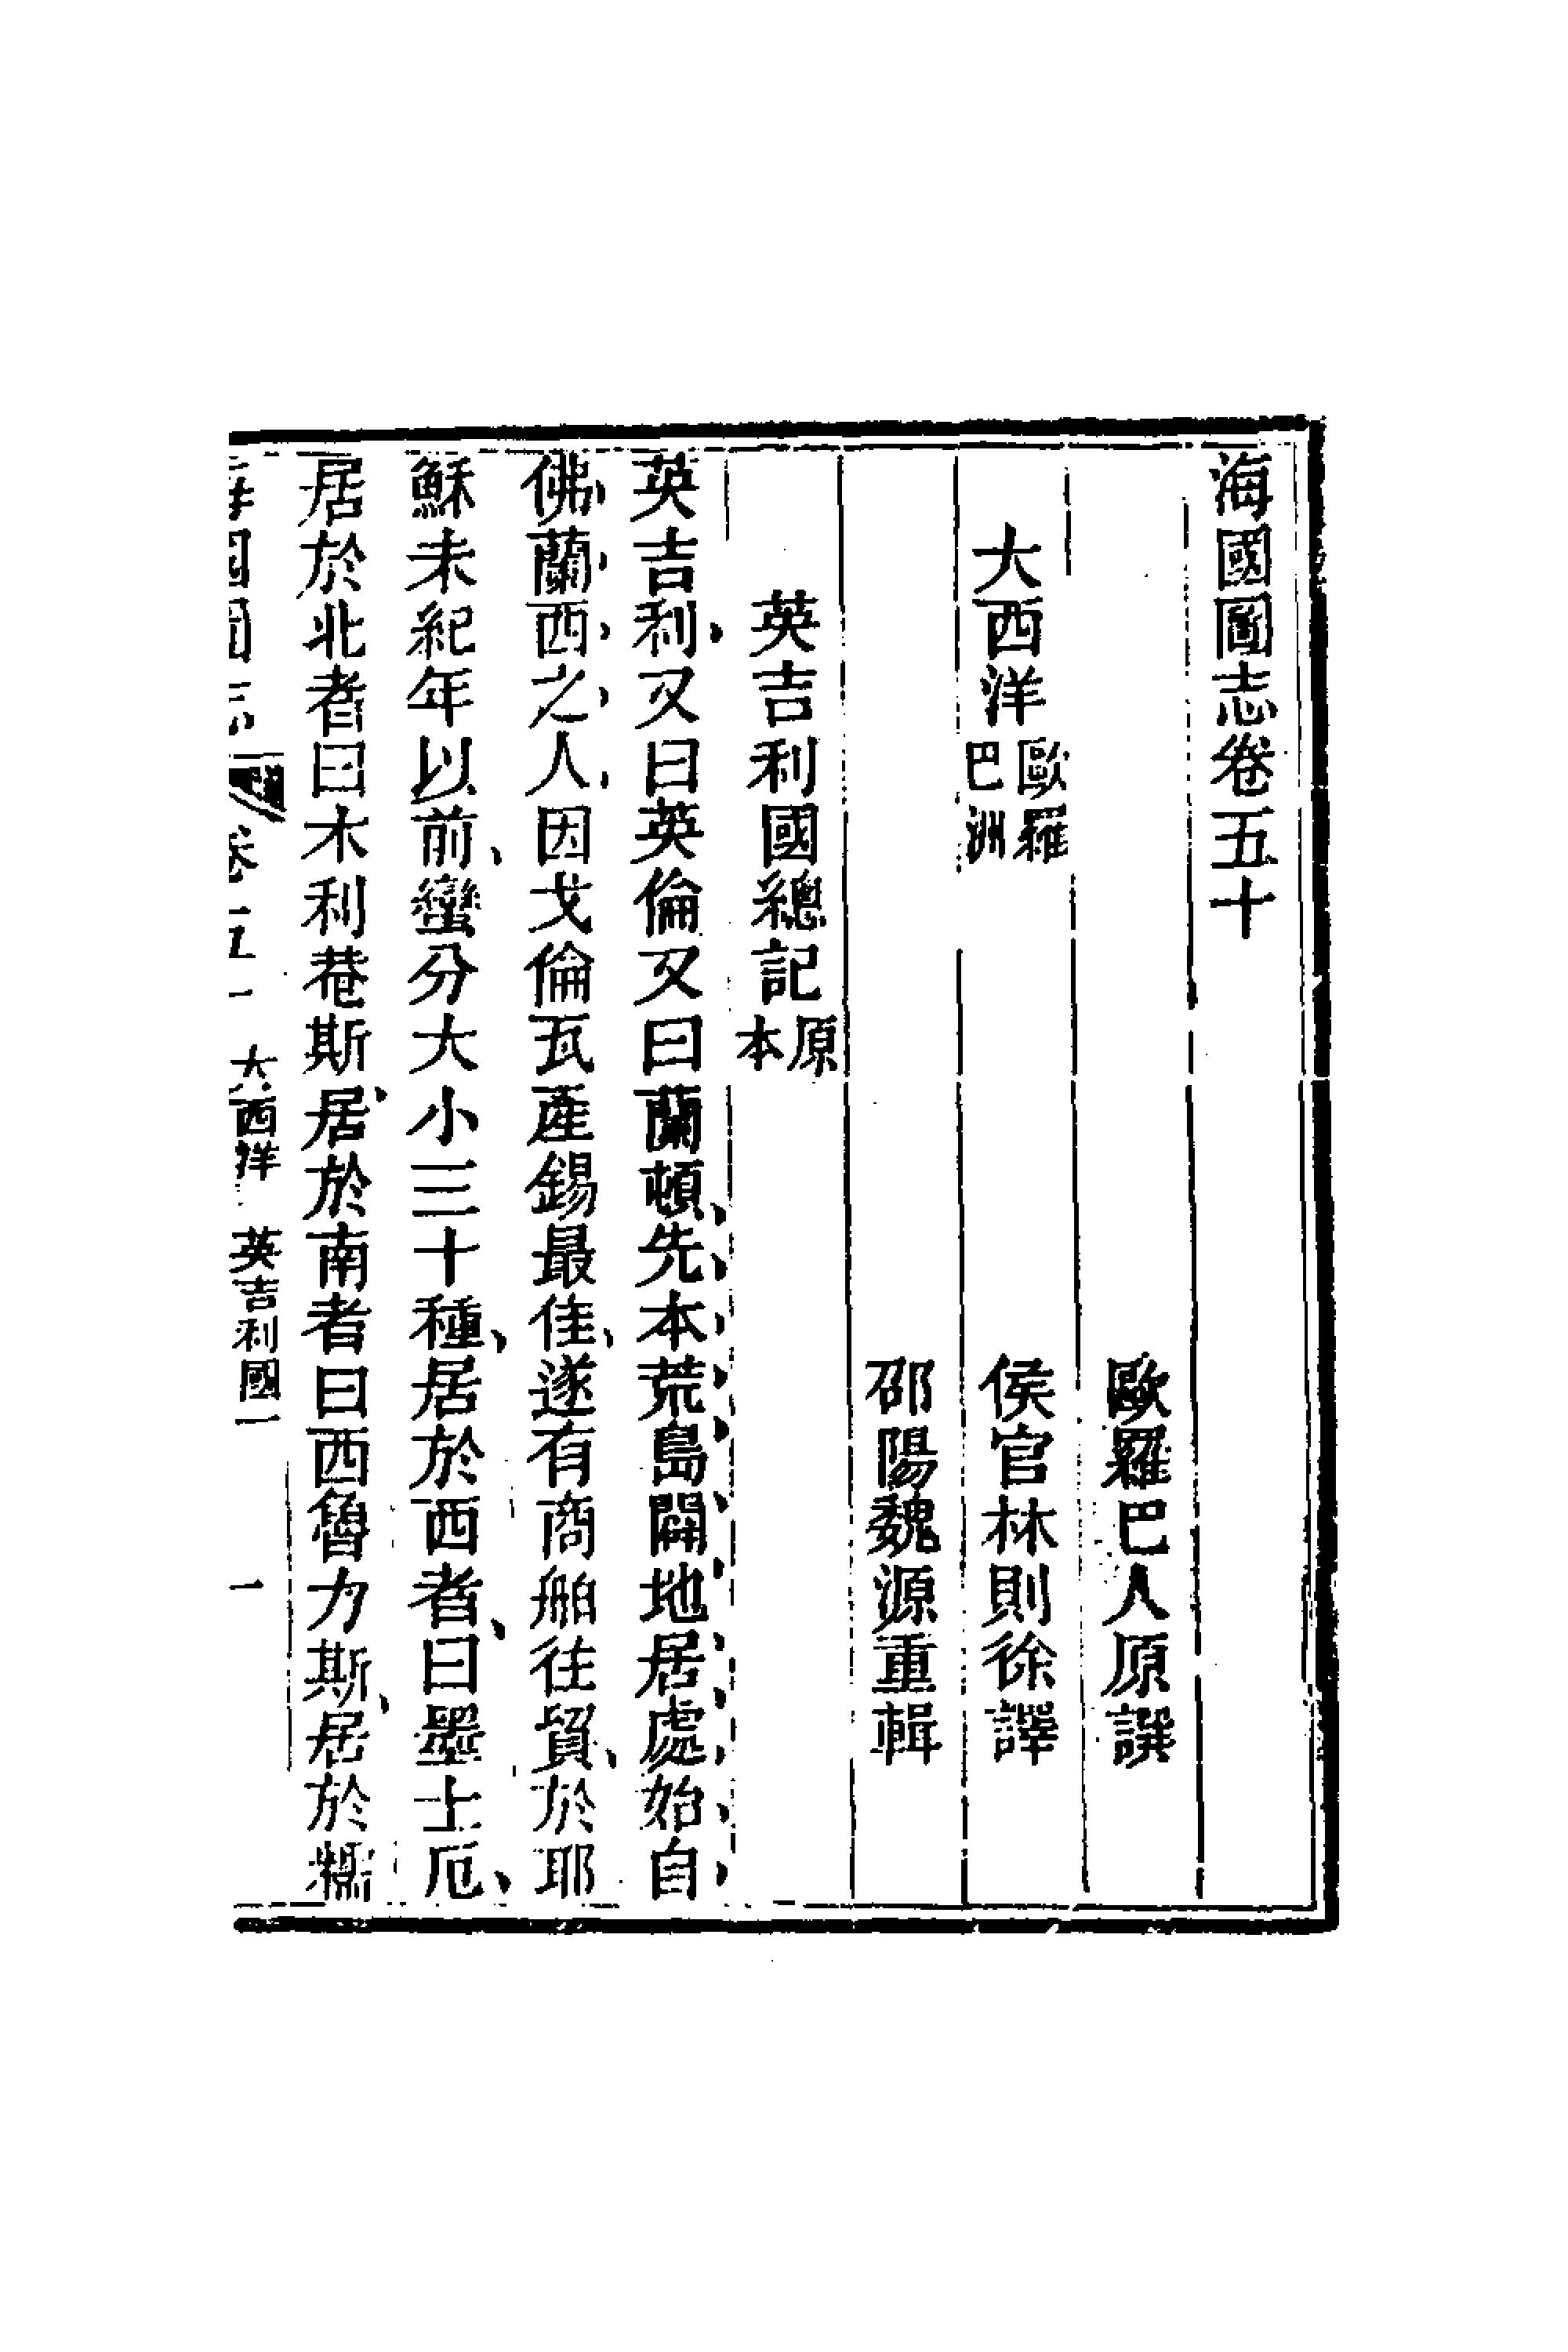 海國圖志卷五十
歐羅巴人原譔
大西洋歐羅巴洲 侯官林則徐譯
邵陽魏源重輯
英吉利國總記原本
英吉利又曰英倫又曰蘭頓先本荒島闢地居處始自
佛蘭西之人因戈倫瓦產錫最佳遂有商舶往貿於耶
穌未紀年以前蠻分大小三十種居於西者曰墨士厄
居於北者曰木利菴斯居於南者曰西魯力斯居於糯
海國圖志 卷五十 大西洋 英吉利國一 一